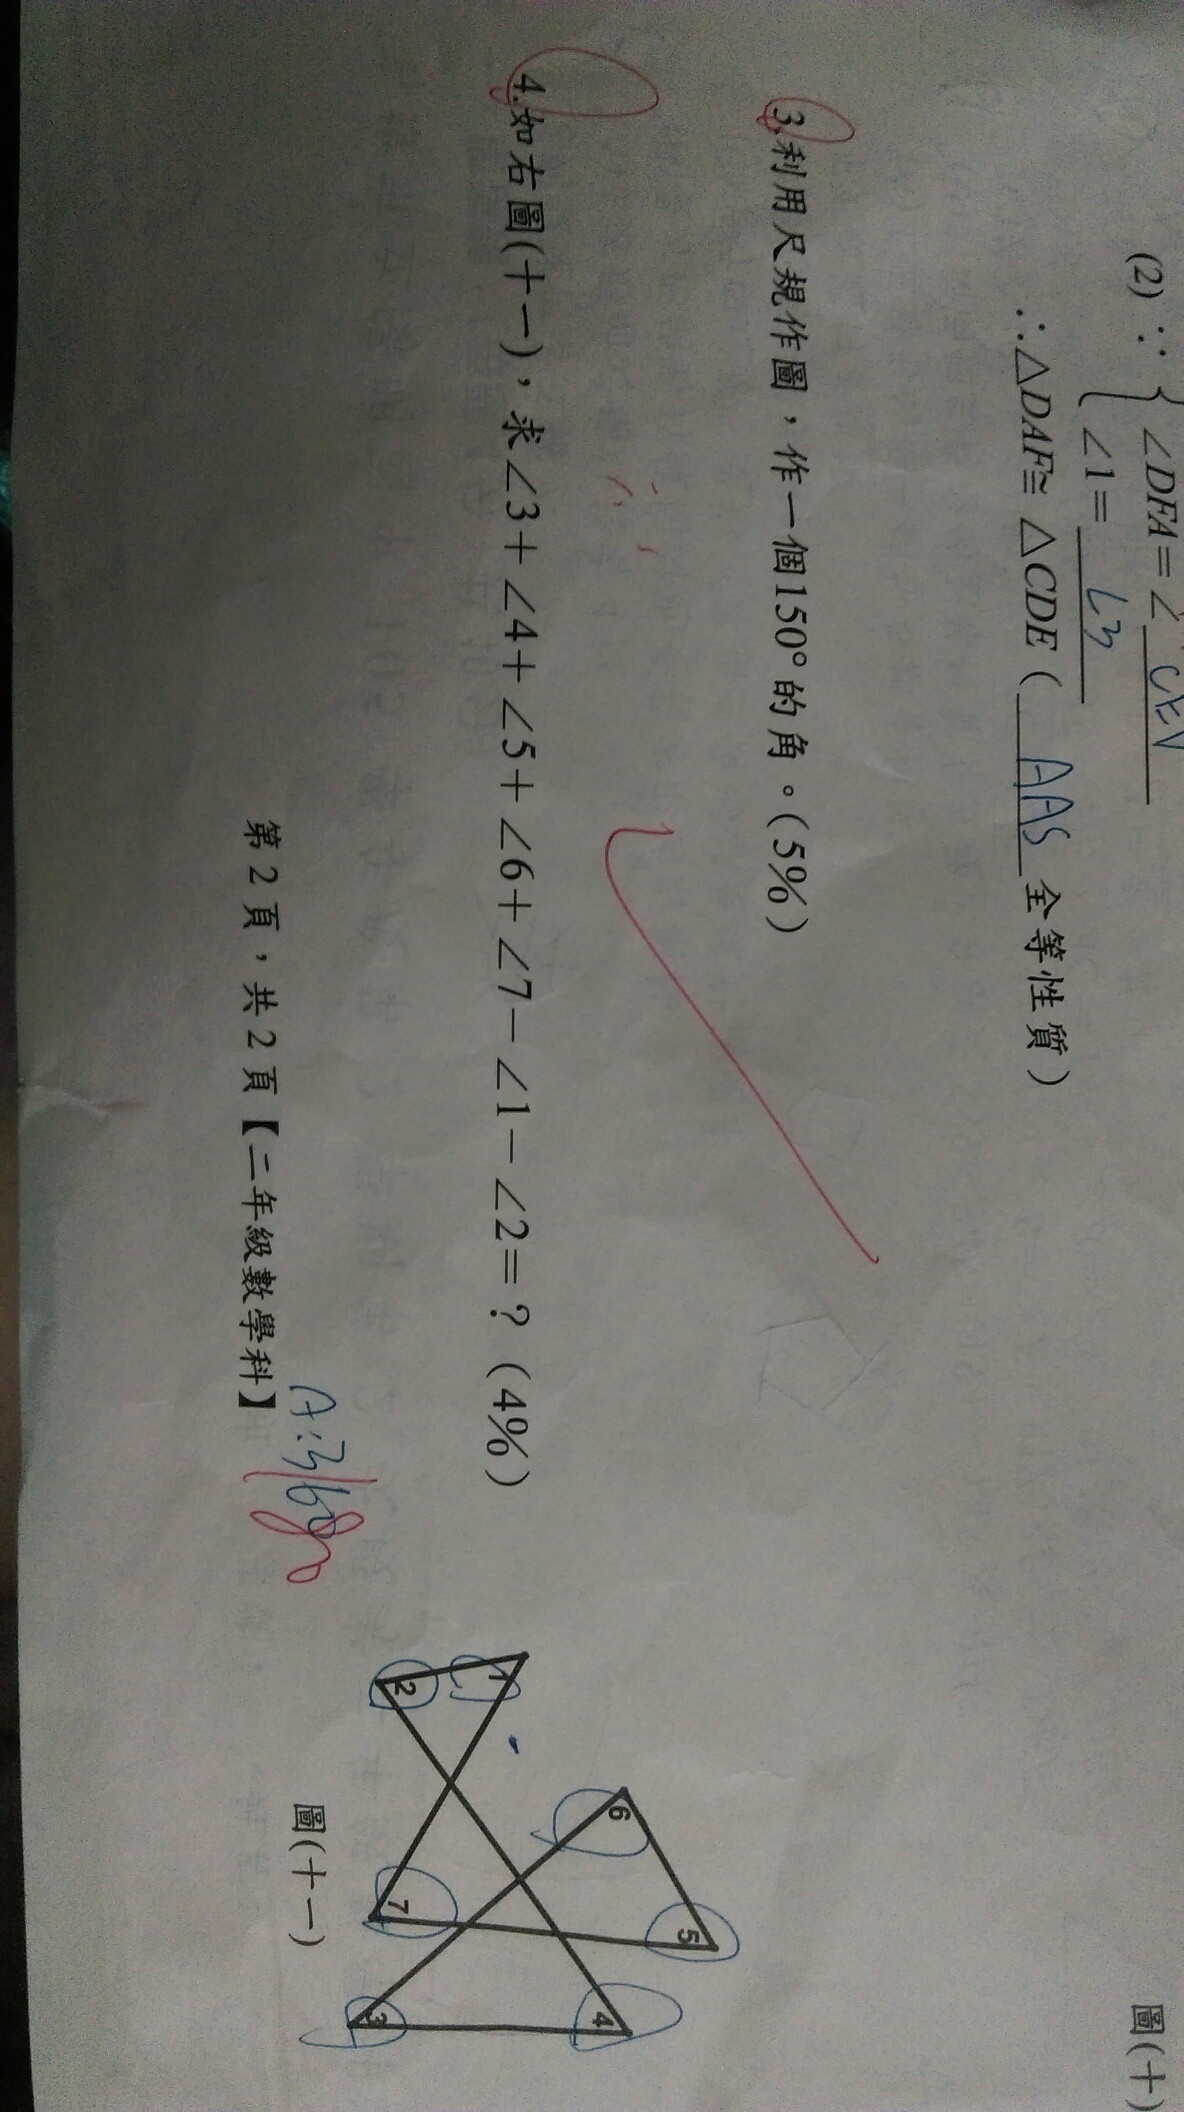 (2) ∵ { ∠DFA=∠
∠1= ∠3
∴△DAF≅△CDE( AAS 全等性質)
圖(十)
3.利用尺規作圖，作一個150°的角。(5%)
4.如右圖(十一)，求∠3+∠4+∠5+∠6+∠7-∠1-∠2=？(4%)
1
2
3
4
5
6
7
圖(十一)
A:360
第2頁，共2頁【二年級數學科】